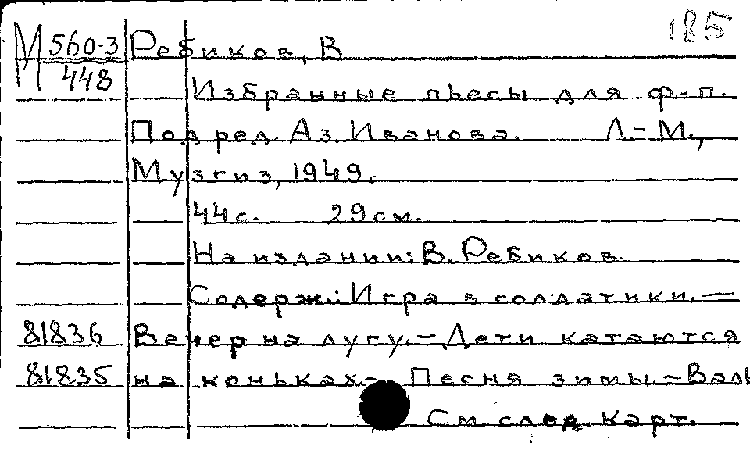 185
М 560-3 Ребиков, В
448
Избранные пьесы для ф.-п.
Под ред. Аз. Иванова. Л.-М.,
Музгиз, 1949.
44 с. 29 см.
На издании: В. Ребиков.
Содерж.: Игра в солдатики. —
81836 Вечер на лугу. — Дети катаются
81835 на коньках. — Песня зимы. — Вал
См. след. карт.